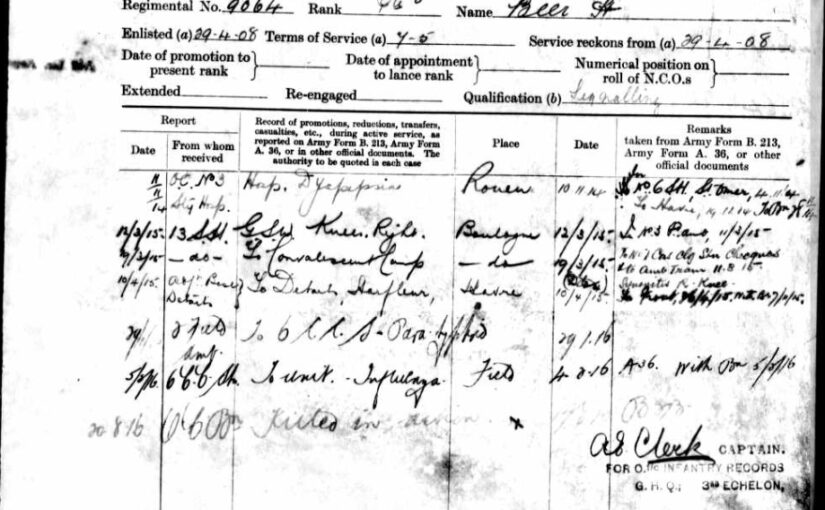 Regimental No. 9064 Rank Name Beer H
Enlisted (a) 29-4-08 Terms of Service (a) 7-5 Service reckons from (a) 29-4-08
Date of promotion to present rank
Date of appointment to lance rank
Numerical position on roll of N.C.Os
Extended Re-engaged Qualification (b) Signalling
Report
Date
From whom received
Record of promotions, reductions, transfers, casualties, etc., during active service, as reported on Army Form B. 213, Army Form A. 36, or in other official documents. The authority to be quoted in each case
Place
Date
Remarks taken from Army Form B. 213, Army Form A. 36, or other official documents
11/11/14 O.C. No 3 Sty Hosp. Hosp. Dyspepsia Rouen 10 11 14 To No 6 SH, St Omer, 4.11.14
To Havre, 14.11.14
12/3/15. 13 S.H. G.S.W. Knee. Right. Boulogne 12/3/15. 11/3/15.
19/3/15 -do- To Convalescent Camp -do- 19/3/15. To No 1 Cas Clg Stn Chocques
to Amb Train 11-3-15
Synovitis R. Knee
10/4/15. Adjt Base Details To Details, Harfleur, Havre 10/4/15
2 Field Amb To 6 C.C.S. Para typhoid 29.1.16
5/2/16. 6 C.C. Stn. To unit. - Influenza. Field 4 2 16 A36. With Bn 5/2/16
20-8-16 O C Bn Killed in action B 213
AS Clerk CAPTAIN.
FOR O. I/C INFANTRY RECORDS
G. H. Q. 3RD ECHELON,